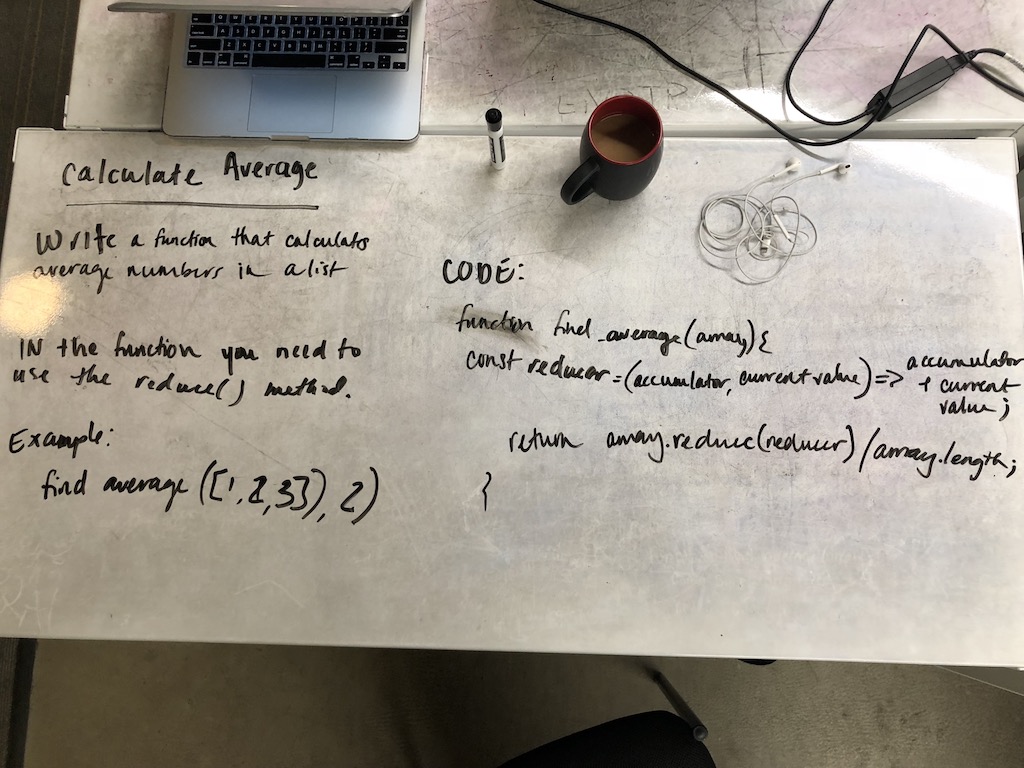 Calculate Average
Write a function that calculats
average numbers in a list
IN the function you need to
use the reduce() method.
Example:
find average ([1,2,3]), 2)
CODE:
function find_average(array){
const reducer = (accumulator, current value) => accumulator
+ current
value;
return array.reduce(reducer) / array.length;
}